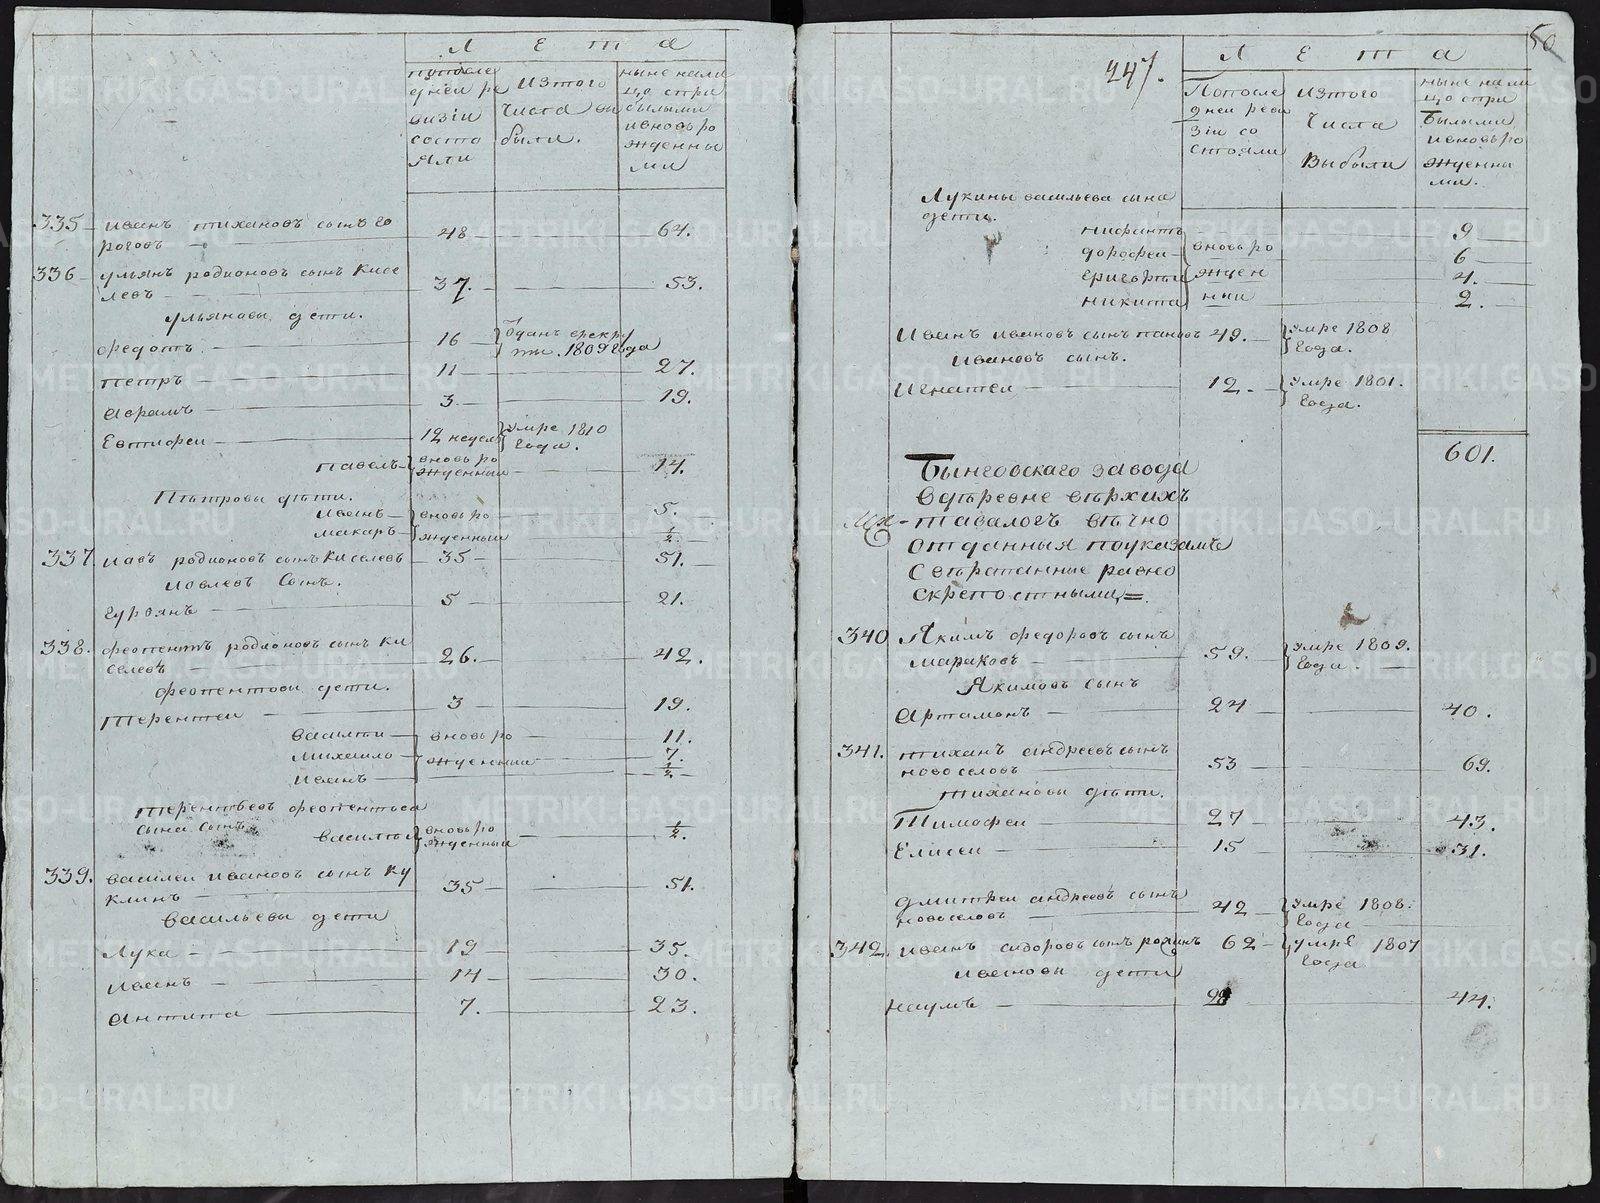 Л е т а
попосле
дней ре
визіи
состо
яли
изтого
числа вы
были.
ныне нали
цо спри
былыми
ивновь ро
жденны
ми
335 иванъ тихановъ сынъ го
роговъ 48 64.
336 ульянъ родионовъ сынъ кисе
левъ 37. 53.
ульяновы дети.
федотъ 16 Зданъ врекру
ты. 1809 года
петръ 11 27.
аврамъ 3 19.
Евтифеи 12 недел умре 1810
года.
павелъ вновь ро
жденный 14.
Петровы дети.
иванъ вновь ро 5.
макаръ жденныи 1/2.
337 иовъ родионовъ сынъ киселевъ 35 51.
иовлевъ сынъ.
гурьянъ 5 21.
338. феопентъ родионовъ сынъ ки
селевъ 26. 42.
феопентовы дети.
терентеи 3 19.
василии вновь ро 11.
михаило жденныи 7.
иванъ 1/2.
терентьевъ феопентьева
сына сынъ
василии вновь ро
жденныи 1/2.
339. василеи ивановъ сынъ ку
клинъ 35 51.
васильевы дети
Лука 19 35.
иванъ 14 30.
антипа 7. 23.
50
247.
Л е т а
Попосле
дней реви
зіи со
стояли
изтого
числа
выбыли
ныне нали
цо спри
былыми
ивновь ро
жденны
ми.
Лукины васильева сына
дети.
нифантъ вновь ро 9
дорофеи 6
григореи жден 4.
никита нии 2.
Иванъ ивановъ сынъ пановъ 49. умре 1808
года.
ивановъ сынъ.
игнатеи 12. умре 1801.
года.
601.
Бынговскаго завода
вдеревне верхихъ
тавологъ вечно
отданныя поуказамъ
светратанные равно
скрепостными =
340 Якимъ федоровъ сынъ
мараковъ 59. умре 1809.
года.
Якимовъ сынъ
артамонъ 24 40.
341. тиханъ андреевъ сынъ
новоселовъ 53 69.
тихановы дети.
Тимофеи 27 43.
Елисеи 15 31.
дмитреи андреевъ сынъ
новоселовъ 42 умре 1808.
года
342. иванъ сидоровъ сынъ рохинъ 62 умре 1807
года
ивановы дети
наумъ 28 44.
METRIKI.GASO-URAL.RU